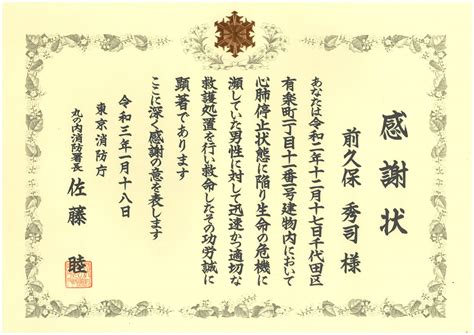 感謝状
前久保 秀司 様
あなたは令和二年十二月十七日千代田区
有楽町一丁目十一番一号建物内において
心肺停止状態に陥り生命の危機に
瀕していた男性に対して迅速かつ適切な
救護処置を行い救命したその功労誠に
顕著であります
ここに深く感謝の意を表します
令和三年一月十八日
東京消防庁
丸の内消防署長 佐藤 睦